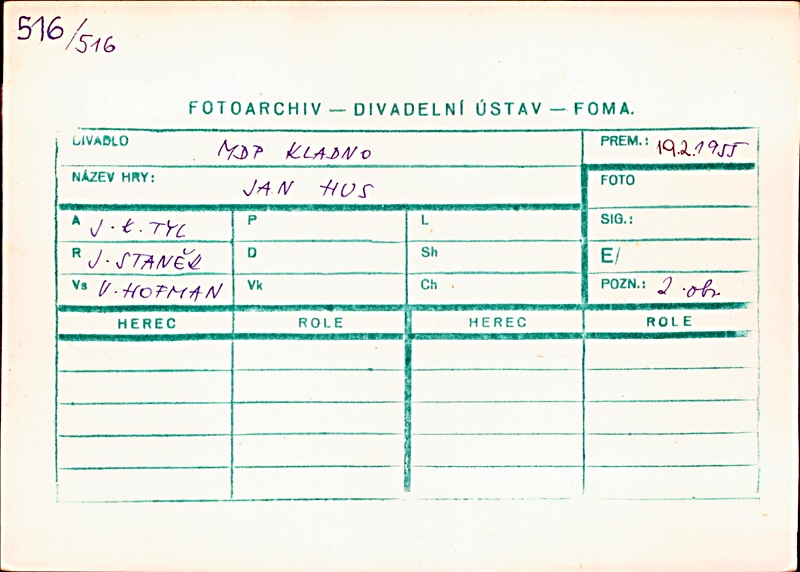 516/516
FOTOARCHIV — DIVADELNÍ ÚSTAV — FOMA.
DIVADLO MDP KLADNO PREM.: 19.2.1955
NÁZEV HRY: JAN HUS FOTO
A J. K. TYL P L SIG.:
R J. STANĚK D Sh E/
Vs V. HOFMAN Vk Ch POZN.: 2. obr.
HEREC ROLE HEREC ROLE